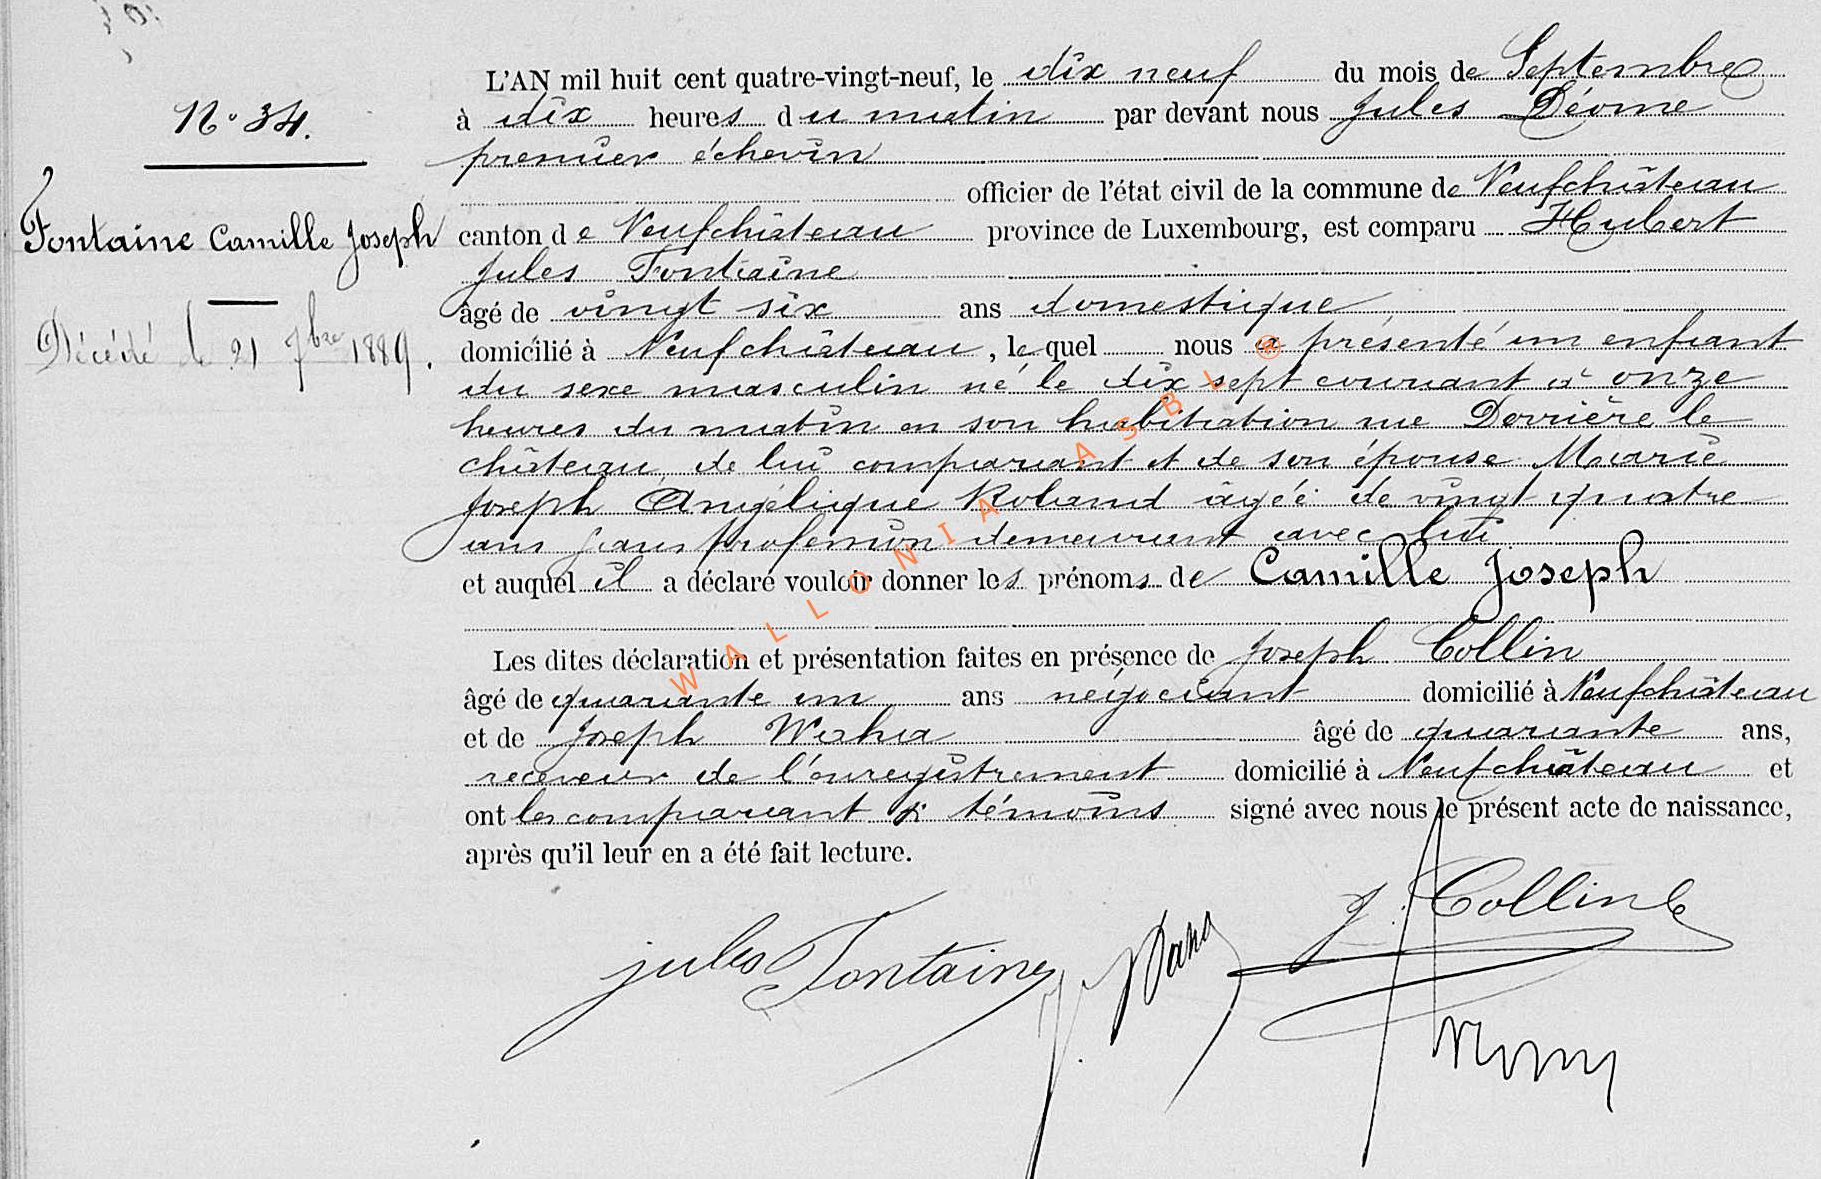 N° 34.
Fontaine Camille Joseph
Décédé le 21 7bre 1889.
L'AN mil huit cent quatre-vingt-neuf, le dix neuf du mois de Septembre
à dix heures du matin par devant nous Jules Déome
premier échevin
officier de l'état civil de la commune de Neufchâteau
canton de Neufchâteau province de Luxembourg, est comparu Hubert
Jules Fontaine
âgé de vingt six ans domestique
domicilié à Neufchâteau, lequel nous a présenté un enfant
du sexe masculin né le dix sept courant à onze
heures du matin en son habitation rue Derrière le
château, de lui comparant et de son épouse Marie
Joseph Angélique Roland âgée de vingt quatre
ans sans profession demeurant avec lui
et auquel il a déclaré vouloir donner les prénoms de Camille Joseph
Les dites déclaration et présentation faites en présence de Joseph Collin
âgé de quarante un ans négociant domicilié à Neufchâteau
et de Joseph âgé de quarante ans,
receveur de l'enregistrement domicilié à Neufchâteau et
ont les comparant & témoins signé avec nous le présent acte de naissance,
après qu'il leur en a été fait lecture.
jules Fontaine
J. Collin
WALLONIA ASBL ®